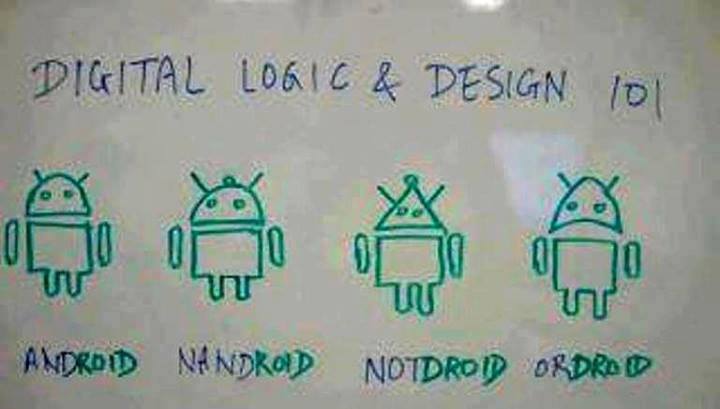 DIGITAL LOGIC & DESIGN 101
ANDROID NANDROID NOTDROID ORDROID